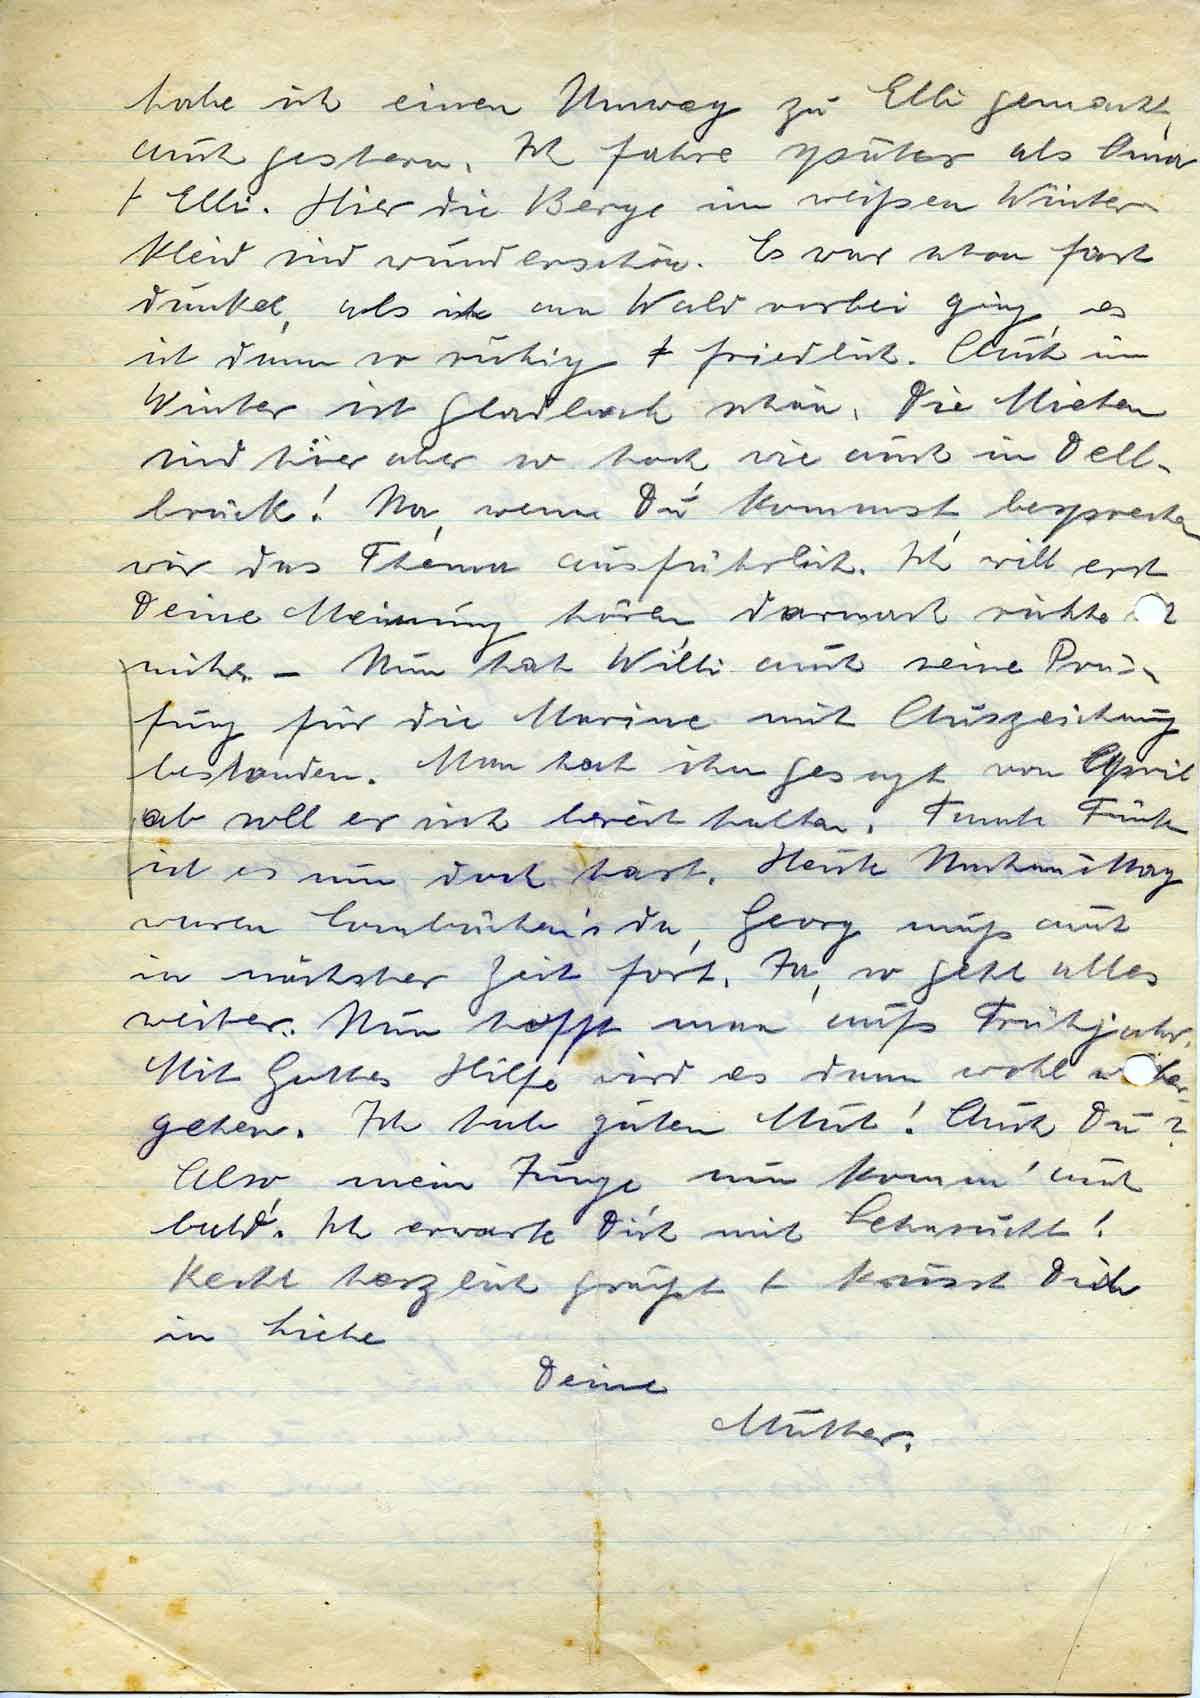 habe ich einen Umweg zu Elli gemacht,
auch gestern. Ich fahre später als Oma
+ Elli. Hier die Berge im weißen Winter-
kleid sind wunderschön. Es war schon fast
dunkel, als ich am Wald vorbei ging, es
ist dann so ruhig + friedlich. Auch im
Winter ist Gladbach schön. Die Mieten
sind hier aber so hoch wie auch in Dell-
brück! Na, wenn Du kommst, besprechen
wir das Thema ausführlich. Ich will erst
Deine Meinung hören darnach richte
mich. – Nun hat Willi auch seine Prü-
fung für die Marine mit Auszeichnung
bestanden. Man hat ihm gesagt von April
ab soll er sich bereit halten. Tante
ist es nun doch hart. Heute Nachmittag
waren da, Georg muß auch
in nächster Zeit fort. Ja, so geht alles
weiter. Nun hofft man aufs Frühjahr.
Mit Gottes Hilfe wird es dann wohl
gehen. Ich hab guten Mut! Auch Du?
Also, mein Junge, nun komm' auch
bald. Ich erwarte Dich mit Sehnsucht!
Recht herzlich grüßt + küsst Dich
in Liebe
Deine
Mutter.